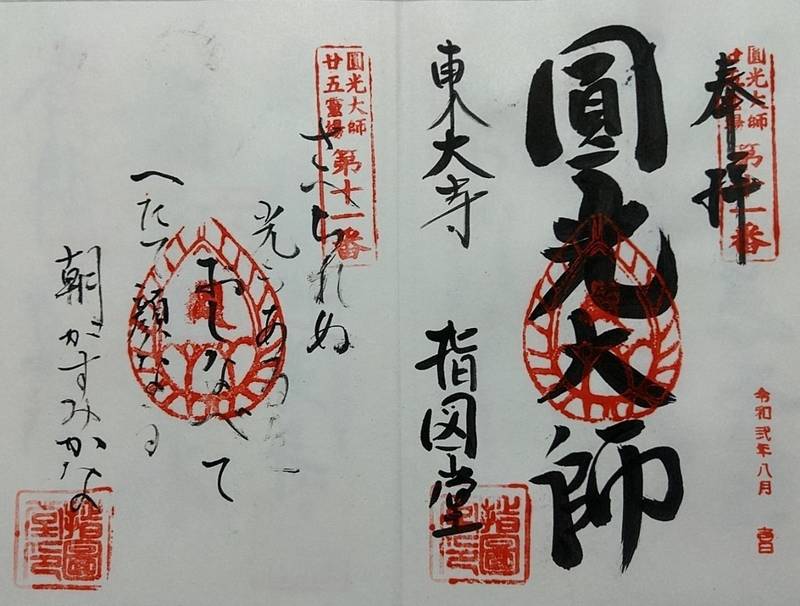 奉拝
圓光大師
廿五霊場
第十一番
圓光大師
東大寺
指図堂
令和弐年八月 日
指圖堂印
圓光大師
廿五霊場
第十一番
さへられぬ
光もあるを
おしなべて
へだて顔なる
朝がすみかな
指圖堂印